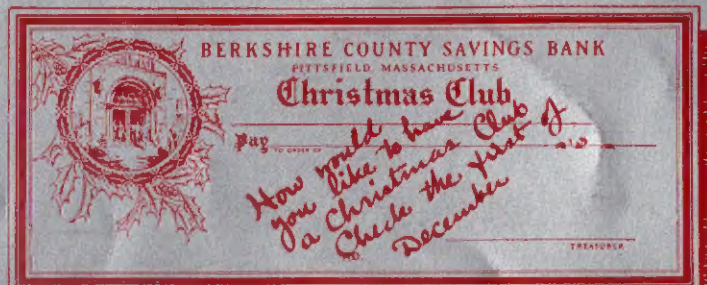 BERKSHIRE COUNTY SAVINGS BANK
PITTSFIELD, MASSACHUSETTS
Christmas Club
Pay TO ORDER OF
How would
you like to have
a Christmas Club
Check the first of
December
TREASURER